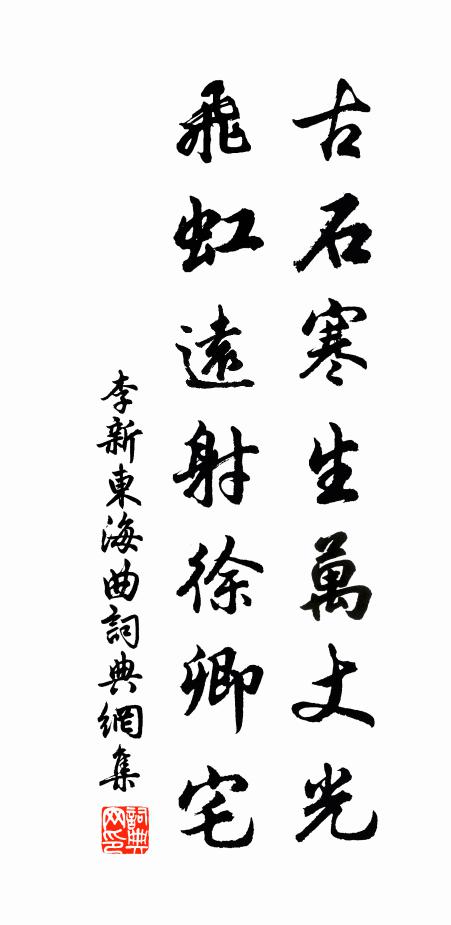 古石寒生萬丈光
飛虹遠射徐卿宅
李新東海曲詞典網集
詞典网印